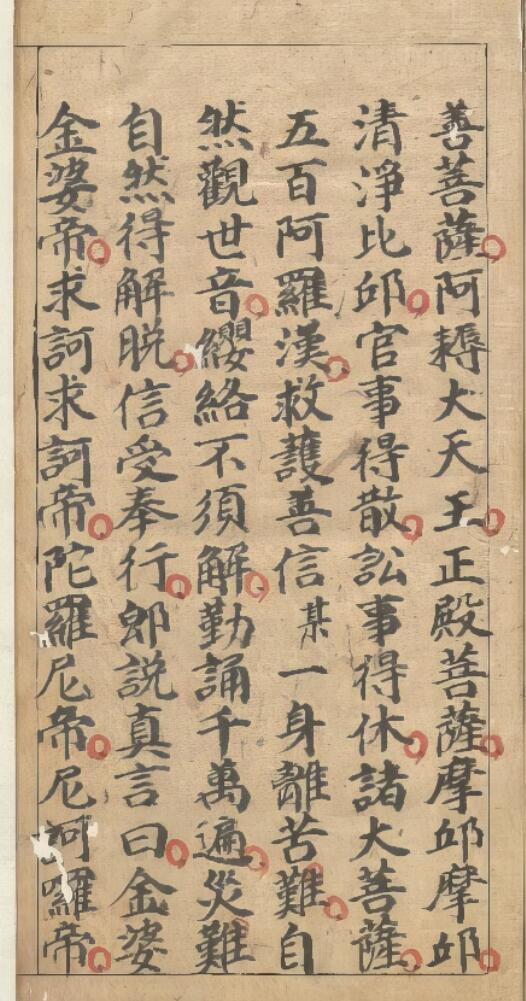 善菩薩阿耨大天王正殿菩薩摩邱摩邱
清淨比邱官事得散訟事得休諸大菩薩
五百阿羅漢救護善信某一身離苦難自
然觀世音纓絡不須解勤誦千萬遍災難
自然得解脱信受奉行郎説真言曰金婆
金婆帝求訶求訶帝陀羅尼帝尼訶囉帝